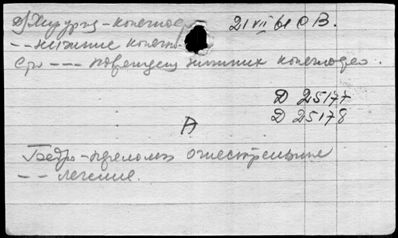 Д) Хирург - конечнос 21 VII 61 О В.
-- нижние конечн.
Ср. --- поврежден нижних конечностей.
Д 25177
Д 25178
А
Бедро - переломы огнестрельные
-- лечение.